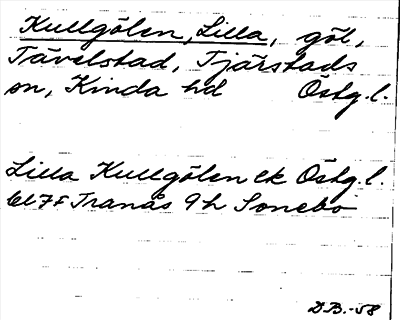 Kullgölen, Lilla, göl,
Tävelstad, Tjärstads
sn, Kinda hd Östg.l.
Lilla Kullgölen ek Östg.l.
bl 7F Tranås 9h Sonebo
D.B.-58